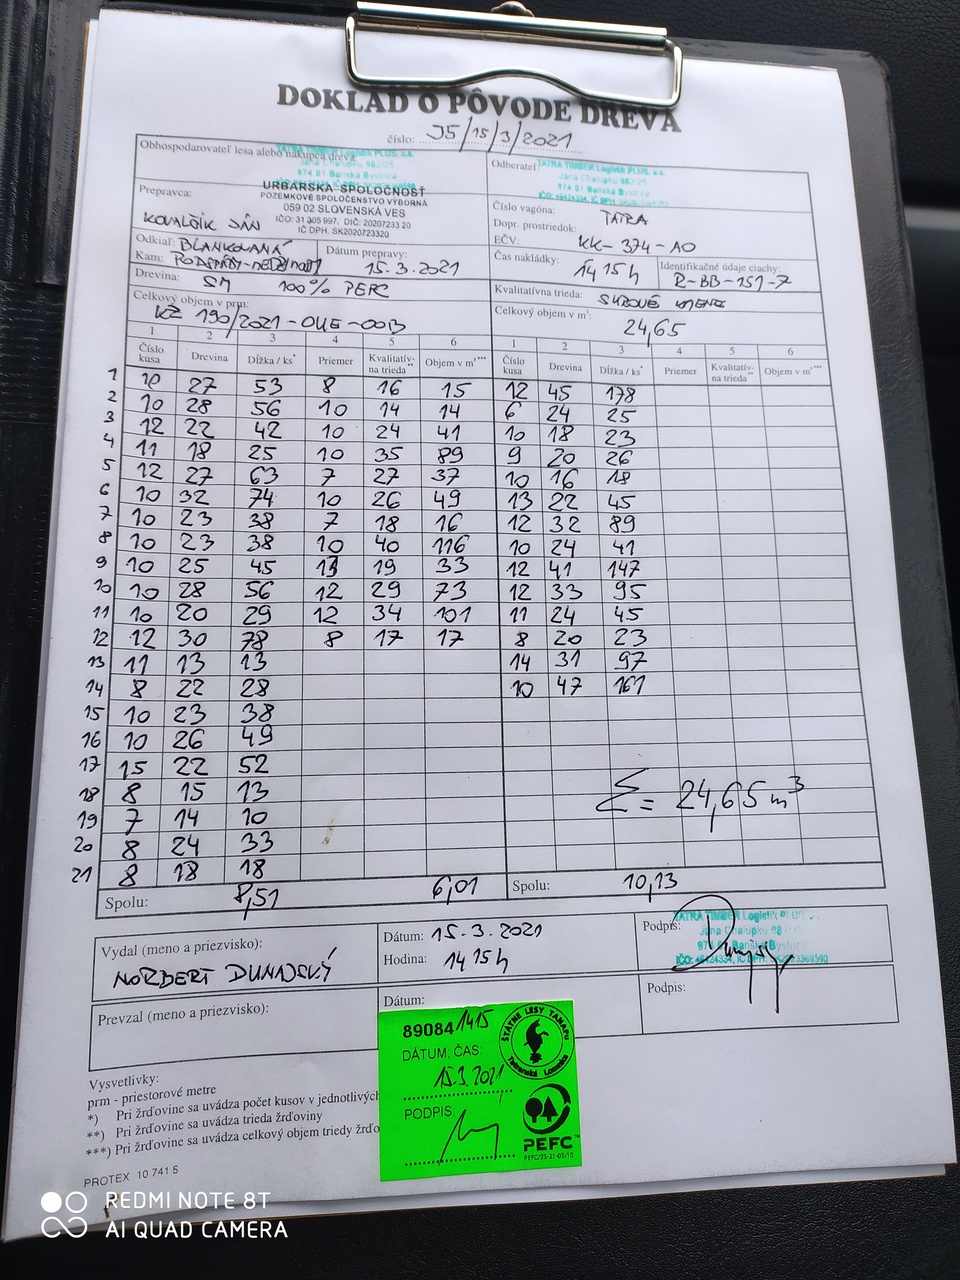 DOKLAD O PÔVODE DREVA
číslo: J5/15/3/2021
Obhospodarovateľ lesa alebo nákupca dreva:
TATRA TIMBER Logistik PLUS, a.s.
Jána Chalupku 982/25
974 01 Banská Bystrica
Odberateľ:
TATRA TIMBER Logistik PLUS, a.s.
Jána Chalupku 982/25
974 01 Banská Bystrica
Prepravca:
KOVALŠIK JÁN
URBÁRSKA SPOLOČNOSŤ
POZEMKOVÉ SPOLOČENSTVO VÝBORNÁ
059 02 SLOVENSKÁ VES
IČO: 31 305 997, DIČ: 20207233 20
IČ DPH: SK2020723320
Číslo vagóna:
Dopr. prostriedok: TATRA
EČV: KK-374-AO
Odkiaľ: BLANKOVANÁ
Kam: PODSPÁDY-
Dátum prepravy:
15.3.2021
Čas nakládky:
14 15 h
Identifikačné údaje ciachy:
R-BB-151-7
Drevina: SM 100% PEFC
Kvalitatívna trieda: SUROVÉ KMENE
Celkový objem v prm:
VZ 190/2021-OUE-OOB
Celkový objem v m³:
24,65
1 2 3 4 5 6 1 2 3 4 5 6
Číslo kusa Drevina Dĺžka / ks* Priemer Kvalitatív-na trieda** Objem v m³*** Číslo kusa Drevina Dĺžka / ks* Priemer Kvalitatív-na trieda** Objem v m³***
1 10 27 53 8 16 15 12 45 178
2 10 28 56 10 14 14 6 24 25
3 12 22 42 10 24 41 10 18 23
4 11 18 25 10 35 89 9 20 26
5 12 27 63 7 27 37 10 16 18
6 10 32 74 10 26 49 13 22 45
7 10 23 38 7 18 16 12 32 89
8 10 23 38 10 40 116 10 24 41
9 10 25 45 13 19 33 12 41 147
10 10 28 56 12 29 73 12 33 95
11 10 20 29 12 34 101 11 24 45
12 12 30 78 8 17 17 8 20 23
13 11 13 13 14 31 97
14 8 22 28 10 47 161
15 10 23 38
16 10 26 49
17 15 22 52
18 8 15 13
19 7 14 10
20 8 24 33
21 8 18 18
Σ = 24,65 m³
Spolu: 8,51 6,01 Spolu: 10,13
Vydal (meno a priezvisko):
NORBERT DUNAJSKÝ
Dátum: 15.3.2021
Hodina: 14 15 h
Podpis:
TATRA TIMBER Logistik PLUS, a.s.
Jána Chalupku 982/25
974 01 Banská Bystrica
Prevzal (meno a priezvisko):
Dátum:
Podpis:
89084 1415
DÁTUM; ČAS:
15.3.2021
PODPIS
ŠTÁTNE LESY TANAPU
Tatranská Lomnica
PEFC
PEFC/23-21-03/10
Vysvetlivky:
prm - priestorové metre
*) Pri žrďovine sa uvádza počet kusov v jednotlivých
**) Pri žrďovine sa uvádza trieda žrďoviny
***) Pri žrďovine sa uvádza celkový objem triedy žrďo
PROTEX 10 741 5
REDMI NOTE 8T
AI QUAD CAMERA